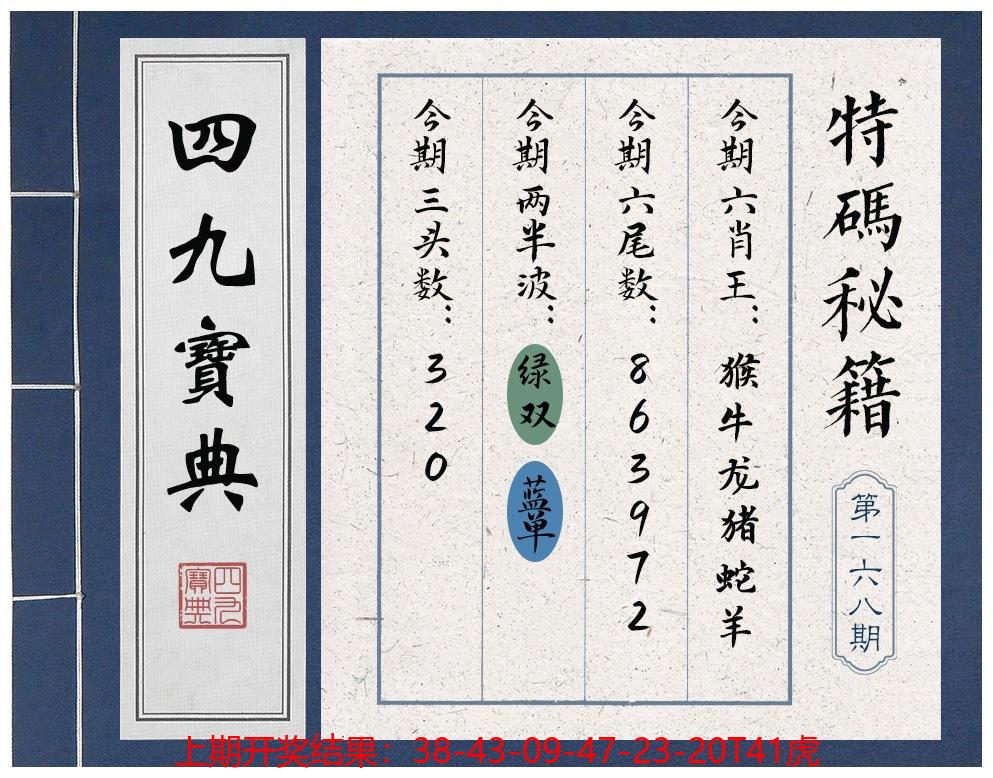 特碼秘籍
第一六八期
今期六肖王：猴牛龙猪蛇羊
今期六尾数：863972
今期两半波：绿双 蓝单
今期三头数：320
四九寶典
四九寶典
上期开奖结果：38-43-09-47-23-20T41虎